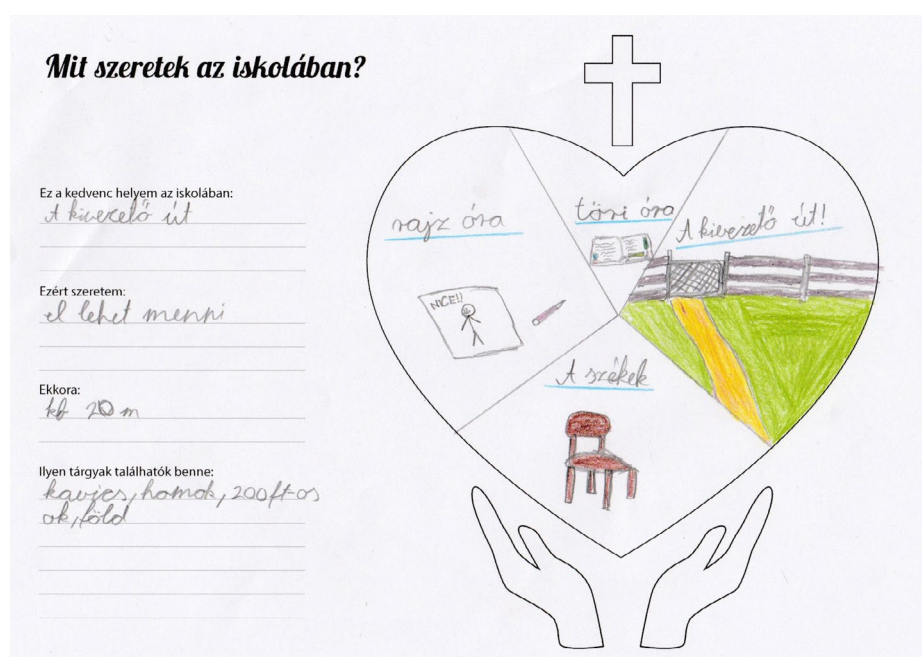 Mit szeretek az iskolában?
Ez a kedvenc helyem az iskolában:
A kivezető út
Ezért szeretem:
el lehet menni
Ekkora:
kb 20 m
Ilyen tárgyak találhatók benne:
kavics, homok, 200 ft-os
ok, föld
rajz óra
NICE!!
töri óra
A kivezető út!
A székek